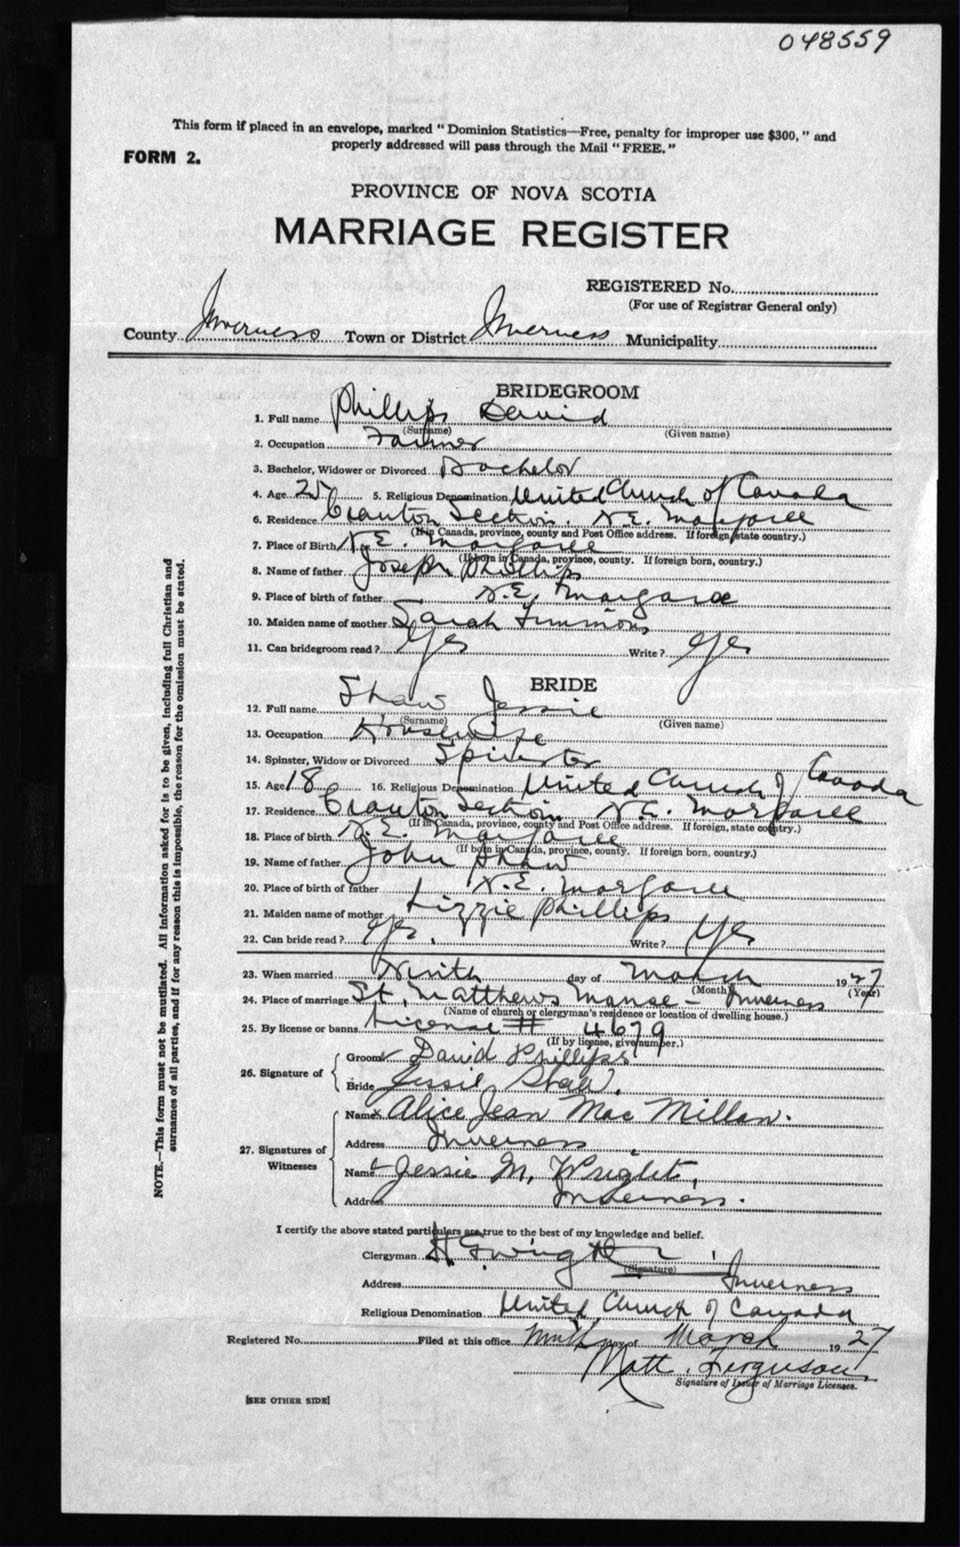 048559
This form if placed in an envelope, marked "Dominion Statistics—Free, penalty for improper use $300," and
properly addressed will pass through the Mail "FREE."
FORM 2.
PROVINCE OF NOVA SCOTIA
MARRIAGE REGISTER
REGISTERED No.
(For use of Registrar General only)
County Inverness Town or District Inverness Municipality
BRIDEGROOM
1. Full name Phillips David
(Surname) (Given name)
2. Occupation Farmer
3. Bachelor, Widower or Divorced Bachelor
4. Age 25 5. Religious Denomination United Church of Canada
6. Residence Section. N.E. Margaree
(If in Canada, province, county and Post Office address. If foreign, state country.)
7. Place of Birth N.E. Margaree
(If born in Canada, province, county. If foreign born, country.)
8. Name of father Joseph Phillips
9. Place of birth of father N.E. Margaree
10. Maiden name of mother Sarah Timmons
11. Can bridegroom read? Yes Write? Yes
BRIDE
12. Full name Shaw Jessie
(Surname) (Given name)
13. Occupation Housewife
14. Spinster, Widow or Divorced Spinster
15. Age 18 16. Religious Denomination United Church of Canada
17. Residence Section N.E. Margaree
(If in Canada, province, county and Post Office address. If foreign, state country.)
18. Place of birth N.E. Margaree
(If born in Canada, province, county. If foreign born, country.)
19. Name of father John Shaw
20. Place of birth of father N.E. Margaree
21. Maiden name of mother Lizzie Phillips
22. Can bride read? Yes. Write? Yes
23. When married Ninth day of March 1927
(Month) (Year)
24. Place of marriage St. Matthews Manse - Inverness
(Name of church or clergyman's residence or location of dwelling house.)
25. By license or banns License # 4679
(If by license, give number.)
26. Signature of Groom David Phillips.
Bride Jessie Shaw.
27. Signatures of Witnesses Name x Alice Jean Mac Millan.
Address Inverness
Name Jessie M. Wright.
Address Inverness.
I certify the above stated particulars are true to the best of my knowledge and belief.
Clergyman
(Signature)
Address Inverness
Religious Denomination United Church of Canada
Registered No. Filed at this office ninth day of March 1927
Matt. Ferguson
Signature of Issuer of Marriage Licenses.
[SEE OTHER SIDE]
NOTE.—This form must not be mutilated. All information asked for is to be given, including full Christian and
surnames of all parties, and if for any reason this is impossible, the reason for the omission must be stated.